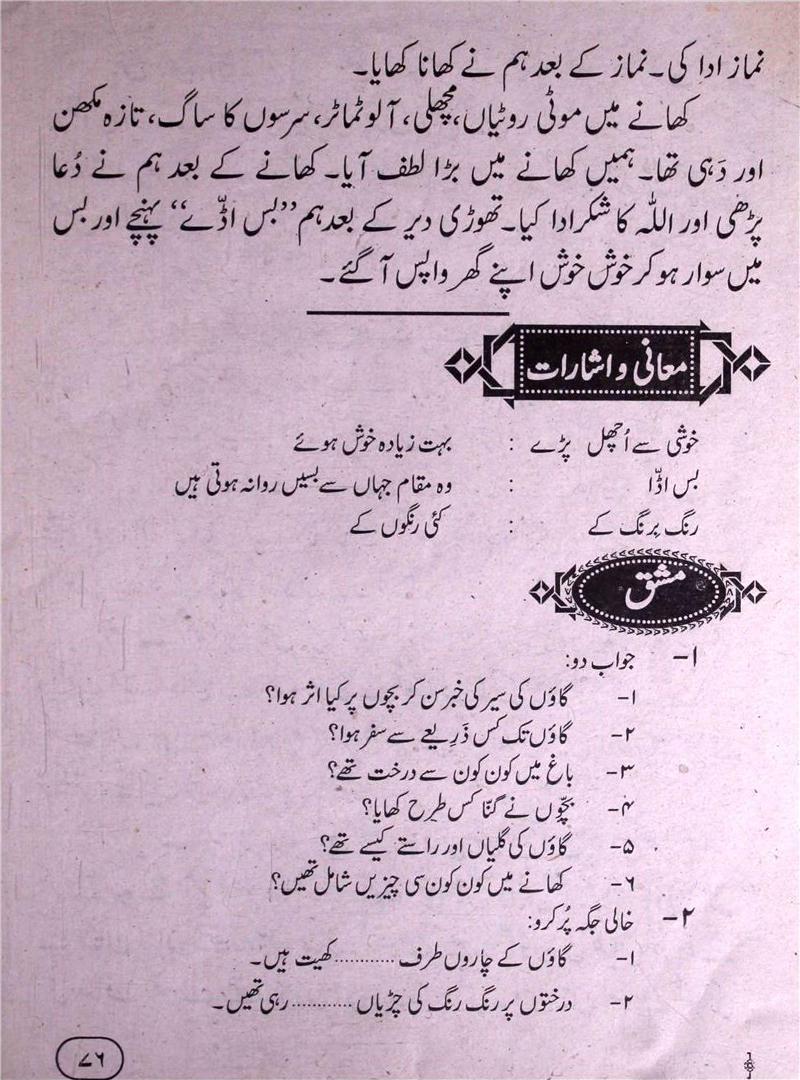 نماز ادا کی۔ نماز کے بعد ہم نے کھانا کھایا۔
کھانے میں موٹی روٹیاں، مچھلی، آلو ٹماٹر، سرسوں کا ساگ، تازہ مکھن
اور دَہی تھا۔ ہمیں کھانے میں بڑا لطف آیا۔ کھانے کے بعد ہم نے دُعا
پڑھی اور اللہ کا شکر ادا کیا۔ تھوڑی دیر کے بعد ہم ”بس اڈّے“ پہنچے اور بس
میں سوار ہو کر خوش خوش اپنے گھر واپس آ گئے۔
معانی و اشارات
خوشی سے اُچھل پڑے : بہت زیادہ خوش ہوئے
بس اڈّا : وہ مقام جہاں سے بسیں روانہ ہوتی ہیں
رنگ بِرنگ کے : کئی رنگوں کے
مشق
۱- جواب دو:
۱- گاؤں کی سیر کی خبر سن کر بچوں پر کیا اثر ہوا؟
۲- گاؤں تک کس ذَرِیعے سے سفر ہوا؟
۳- باغ میں کون کون سے درخت تھے؟
۴- بچّوں نے گنّا کس طرح کھایا؟
۵- گاؤں کی گلیاں اور راستے کیسے تھے؟
۶- کھانے میں کون کون سی چیزیں شامل تھیں؟
۲- خالی جگہ پُر کرو:
۱- گاؤں کے چاروں طرف ............ کھیت ہیں۔
۲- درختوں پر رنگ رنگ کی چڑیاں ............ رہی تھیں۔
۷۶